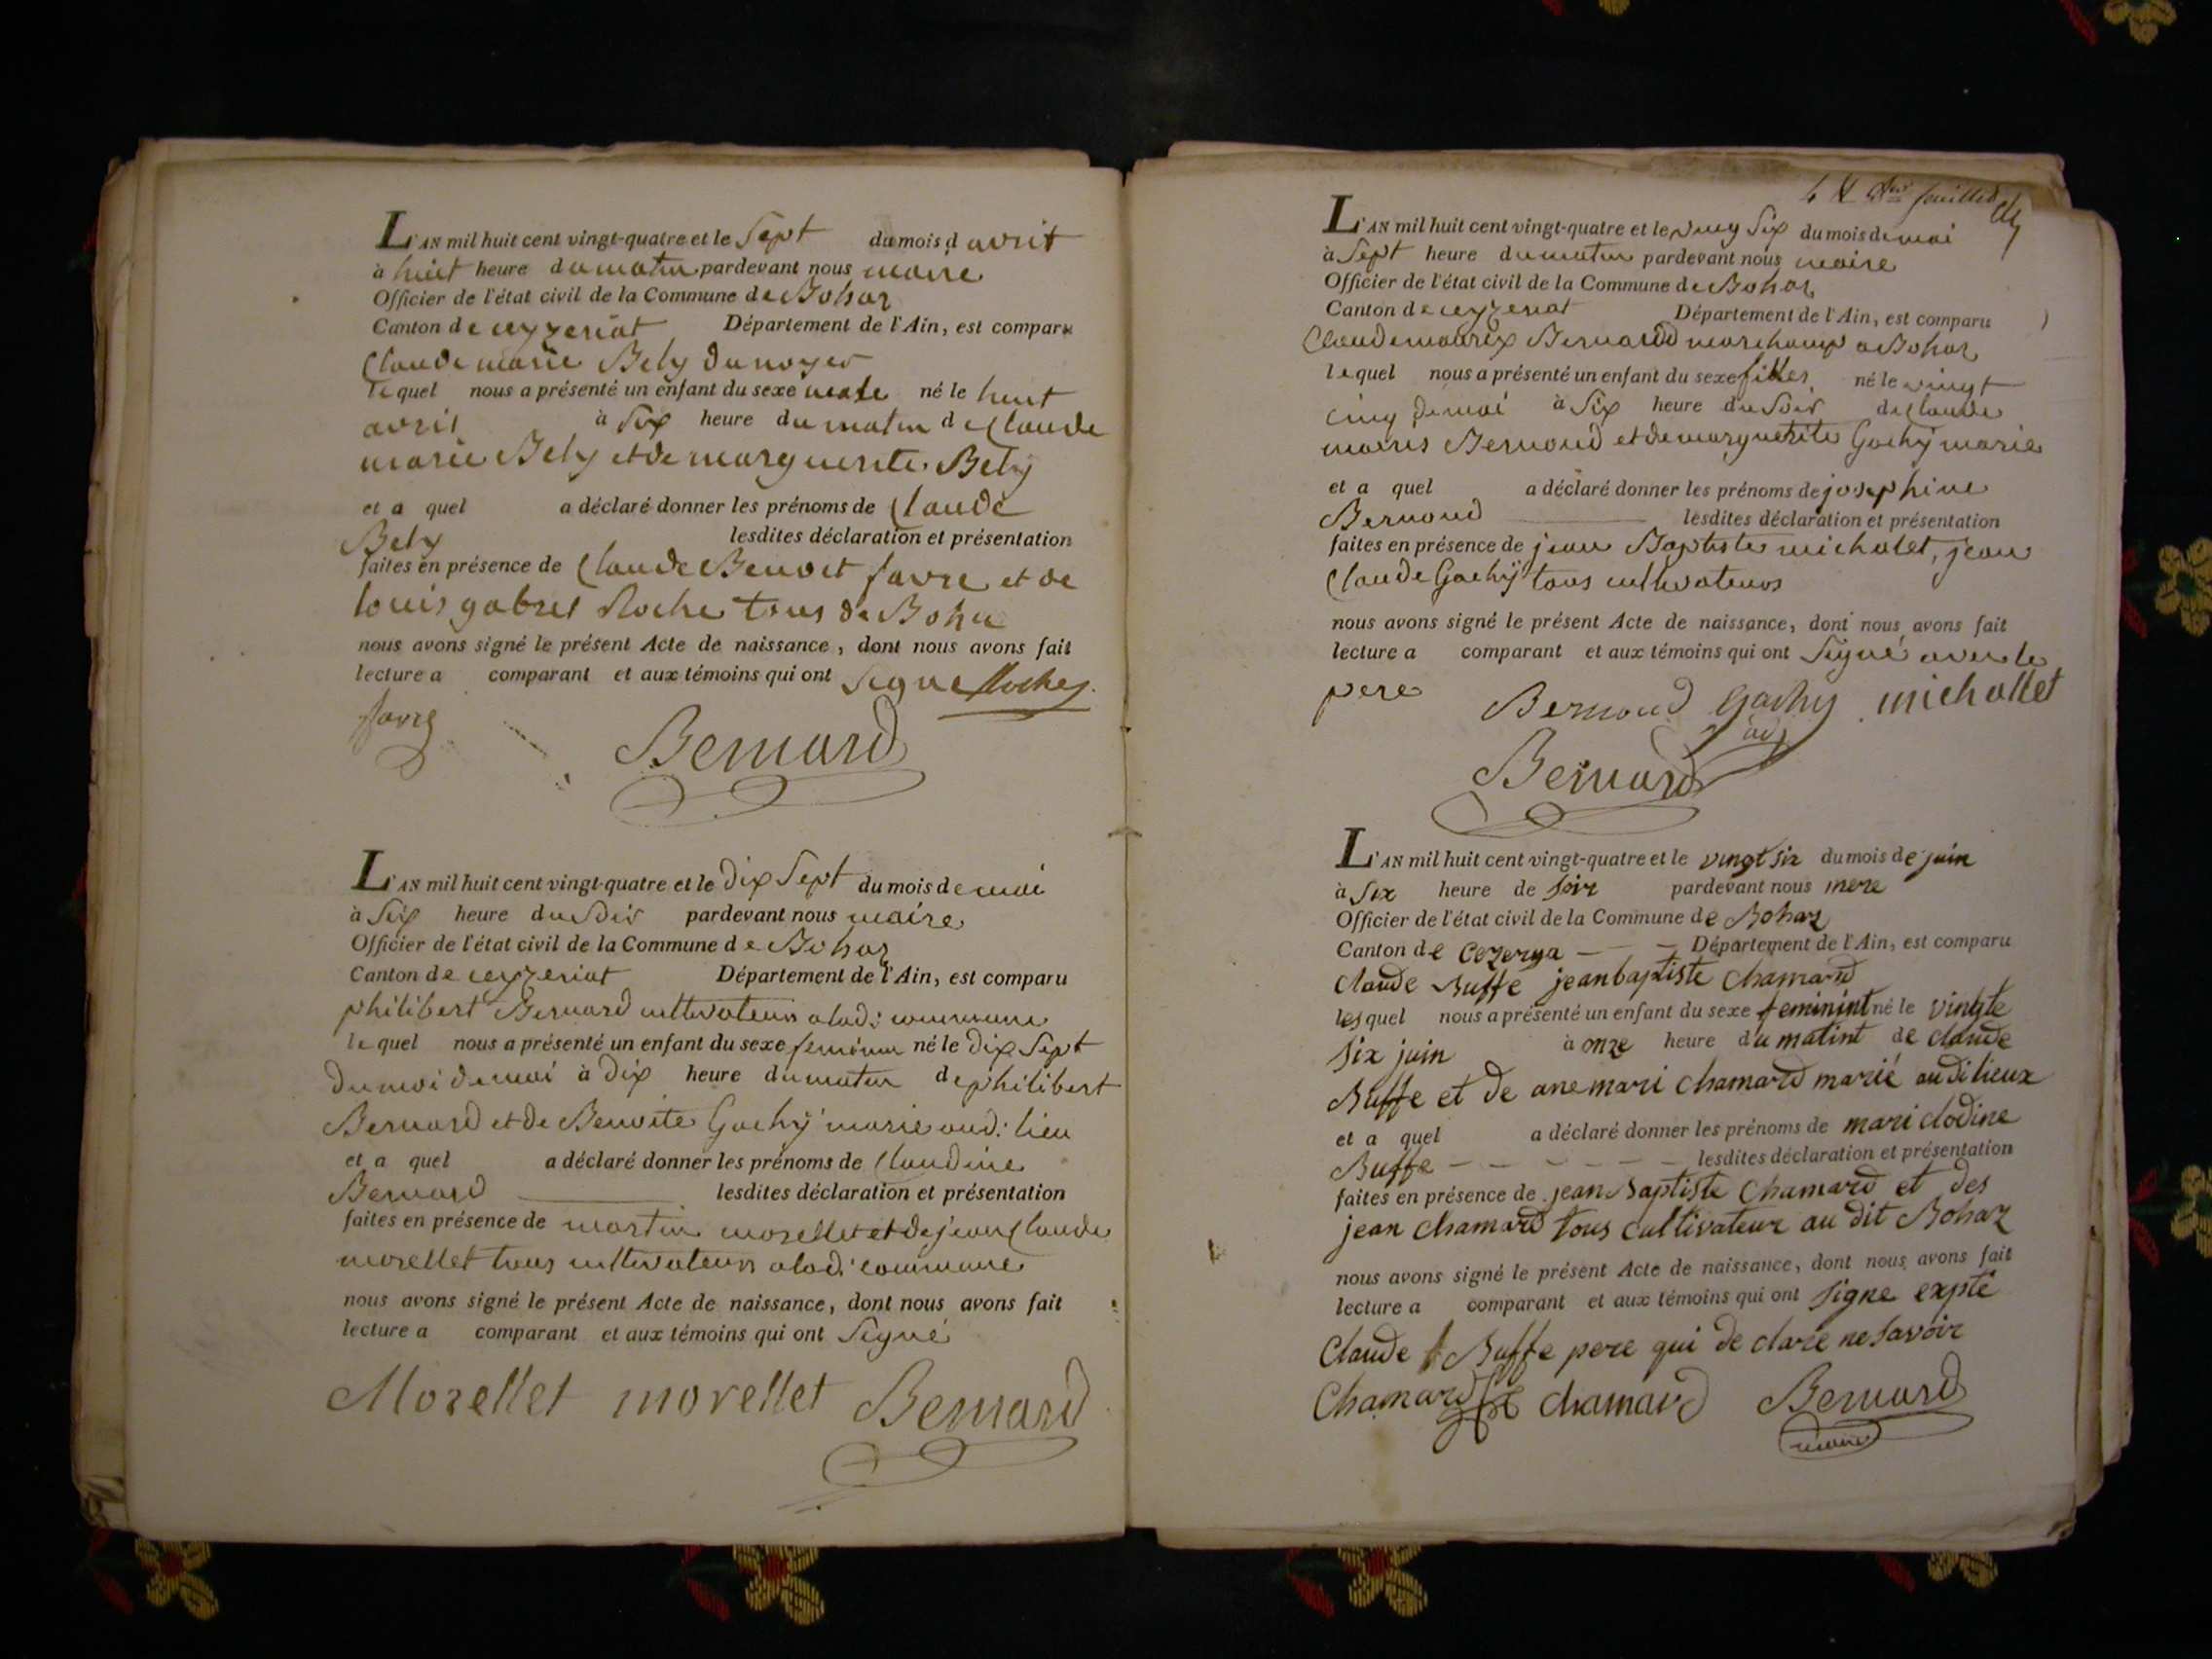 L'AN mil huit cent vingt-quatre et le Sept du mois d avril
à huit heure du matin pardevant nous maire
Officier de l'état civil de la Commune de Bohaz
Canton de ceyzeriat Département de l'Ain, est comparu
Claude marie Bely du noyer
lequel nous a présenté un enfant du sexe male né le huit
avril à Six heure du matin de Claude
marie Bely et de marguerite Bely
et a quel a déclaré donner les prénoms de Claude
Bely lesdites déclaration et présentation
faites en présence de Claude Benoit favre et de
louis gabriel Roche tous de Boha
nous avons signé le présent Acte de naissance, dont nous avons fait
lecture a comparant et aux témoins qui ont Signe Roche
favre
Bernard
L'AN mil huit cent vingt-quatre et le Dix Sept du mois de mai
à Six heure du Soir pardevant nous maire
Officier de l'état civil de la Commune de Bohaz
Canton de ceyzeriat Département de l'Ain, est comparu
philibert Bernard cultivateur alad: commune
lequel nous a présenté un enfant du sexe feminin né le Dix Sept
Du moi de mai à Dix heure du matin de philibert
Bernard et de Benoite Gachÿ marié aud: lieu
et a quel a déclaré donner les prénoms de Claudine
Bernard lesdites déclaration et présentation
faites en présence de martin morellet et de jean Claude
morellet tous cultivateurs alad: commune
nous avons signé le présent Acte de naissance, dont nous avons fait
lecture a comparant et aux témoins qui ont Signé
Morellet morellet Bernard
feuillet
L'AN mil huit cent vingt-quatre et le ving Six du mois de mai
à Sept heure du matin pardevant nous maire
Officier de l'état civil de la Commune de Bohaz
Canton de ceyzeriat Département de l'Ain, est comparu
Bernard a Bohaz
lequel nous a présenté un enfant du sexe filles né le vingt
cinq de mai à Six heure du Soir de Claude
Bernoud et de marguerite Gachÿ marié
et a quel a déclaré donner les prénoms de josephine
Bernoud lesdites déclaration et présentation
faites en présence de jean Baptiste michalet, jean
Claude Gachÿ tous cultivateurs
nous avons signé le présent Acte de naissance, dont nous avons fait
lecture a comparant et aux témoins qui ont Signé avec le
pere Bernoud Gachy michallet
adj
Bernard
L'AN mil huit cent vingt-quatre et le vingt six du mois de juin
à six heure de soir pardevant nous mere
Officier de l'état civil de la Commune de Bohaz
Canton de Cezerya Département de l'Ain, est comparu
claude Buffe jean baptiste chamard
lesquel nous a présenté un enfant du sexe feminint né le vingte
six juin à onze heure du matint de claude
Buffe et de ane mari chamard marié au di lieux
et a quel a déclaré donner les prénoms de mari clodine
Buffe lesdites déclaration et présentation
faites en présence de jean Baptiste Chamard et des
jean chamard tous cultivateur au dit Bohaz
nous avons signé le présent Acte de naissance, dont nous avons fait
lecture a comparant et aux témoins qui ont signe expte
Claude Buffe pere qui de clare ne savoir
Chamard chamard Bernard
maire